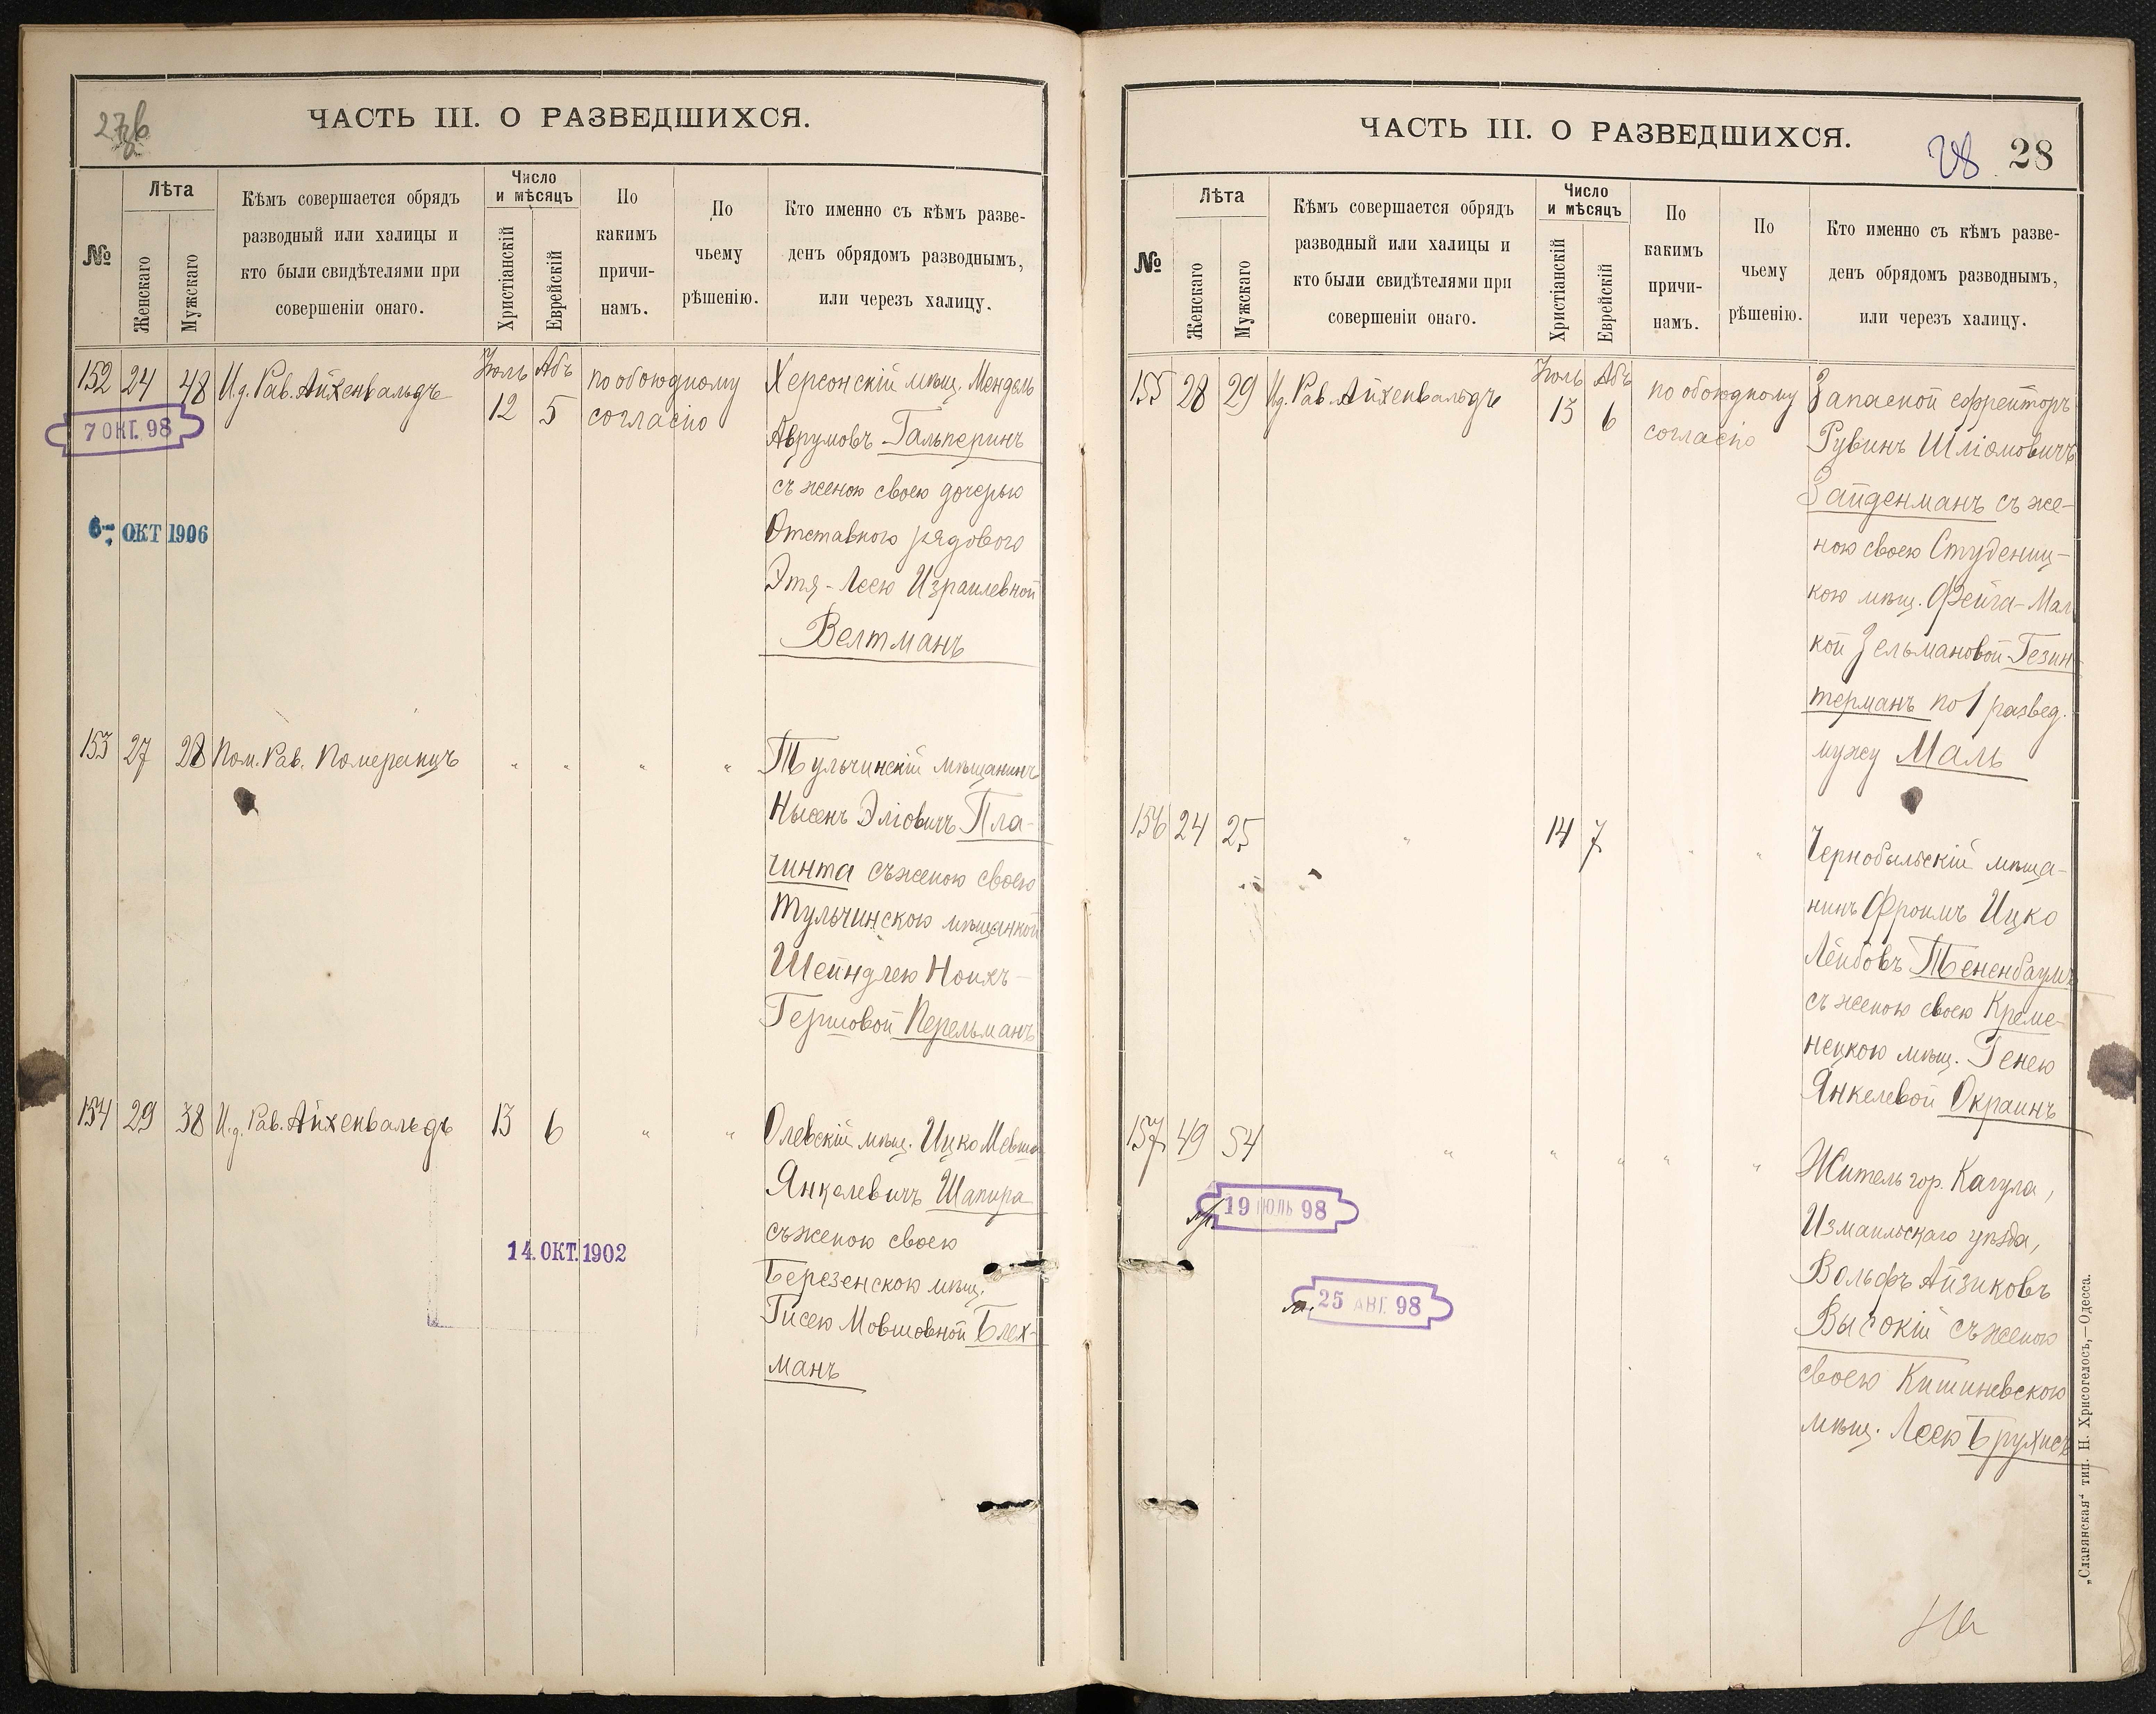 27 об
ЧАСТЬ III. О РАЗВЕДШИХСЯ.
№
Лѣта
Женскаго
Мужскаго
Кѣмъ совершается обрядъ
разводный или халицы и
кто были свидѣтелями при
совершеніи онаго.
Число
и мѣсяцъ
Христіанскій
Еврейскій
По
какимъ
причи-
намъ.
По
чьему
рѣшенію.
Кто именно съ кѣмъ разве-
денъ обрядомъ разводнымъ,
или черезъ халицу.
152 24 48 И.д. Рав. Айхенвальдъ
Іюль Абъ
12 5
по обоюдному
согласію
Херсонскій мѣщ. Мендель
Аврумовъ Гальперинъ
съ женою своею дочерью
Отставного рядового
Этя-Леею Израилевной
Велтманъ
7 ОКТ. 98
6- ОКТ 1906
153 27 28 Пом. Рав. Померанцъ " " " "
Тульчинскій мѣщанинъ
Нысенъ Эліовичъ Пла-
чинта съ женою своею
Тульчинскою мѣщанкой
Шейндлею Нохъ-
Гершовой Перельманъ
154 29 38 И.д. Рав. Айхенвальдъ 13 6 " "
Олевскій мѣщ. Ицко Мевша
Янкелевичъ Шапира
съ женою своею
Березенскою мѣщ.
Гисею Мовшовной Блех-
манъ
14. ОКТ. 1902
ЧАСТЬ III. О РАЗВЕДШИХСЯ.
28 28
№
Лѣта
Женскаго
Мужскаго
Кѣмъ совершается обрядъ
разводный или халицы и
кто были свидѣтелями при
совершеніи онаго.
Число
и мѣсяцъ
Христіанскій
Еврейскій
По
какимъ
причи-
намъ.
По
чьему
рѣшенію.
Кто именно съ кѣмъ разве-
денъ обрядомъ разводнымъ,
или черезъ халицу.
155 28 29 И.д. Рав. Айхенвальдъ
Іюль Абъ
13 6
по обоюдному
согласію
Запасной ефрейторъ
Рувинъ Шліомовичъ
Зайденманъ съ же-
ною своею Студениц-
кою мѣщ. Фейга-Мал
кой Зельмановой Гезин-
терманъ по 1 развед.
мужу Маль
156 24 25 " 14 7 " "
Чернобыльскій мѣща-
нинъ Фроимъ Ицко
Лейбовъ Тененбаумъ
съ женою своею Креме-
нецкою мѣщ. Генею
Янкелевой Окраинъ
157 49 54 " " " " "
Житель гор. Кагула,
Измаильскаго уѣзда,
Вольфъ Айзиковъ
Высокій съ женою
своею Кишиневскою
мѣщ. Леею Брухисъ
19 ІЮЛЬ 98
25 АВГ. 98
„Славянская“ тип. Н. Хрисогелосъ,—Одесса.